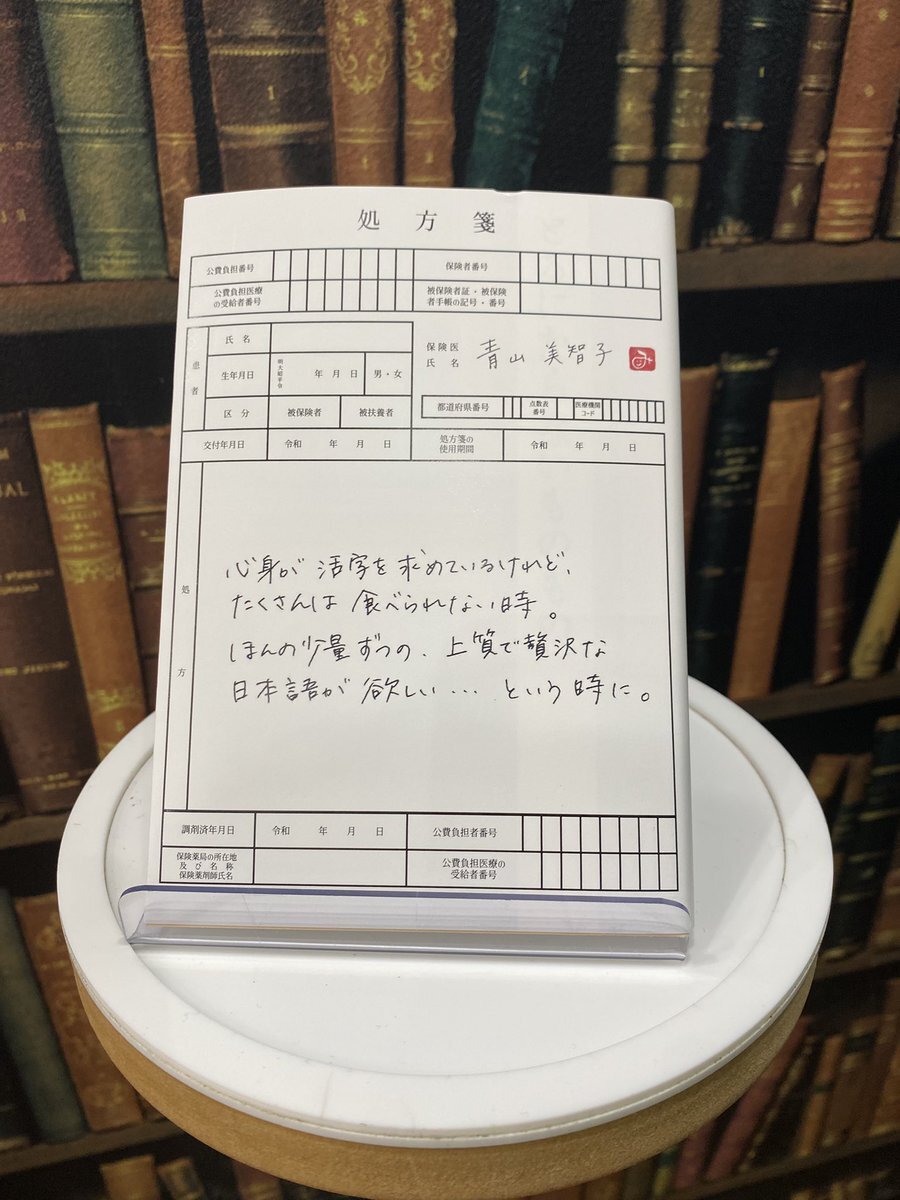 処方箋
公費負担番号
保険者番号
公費負担医療
の受給者番号
被保険者証・被保険
者手帳の記号・番号
患者
氏名
生年月日
明大昭平令
年 月 日
男・女
区分
被保険者
被扶養者
保険医
氏名
青山 美智子
都道府県番号
点数表
番号
医療機関
コード
交付年月日
令和 年 月 日
処方箋の
使用期間
令和 年 月 日
処方
心身が活字を求めているけれど、
たくさんは食べられない時。
ほんの少量ずつの、上質で贅沢な
日本語が欲しい…という時に。
調剤済年月日
令和 年 月 日
公費負担者番号
保険薬局の所在地
及び名称
保険薬剤師氏名
公費負担医療の
受給者番号